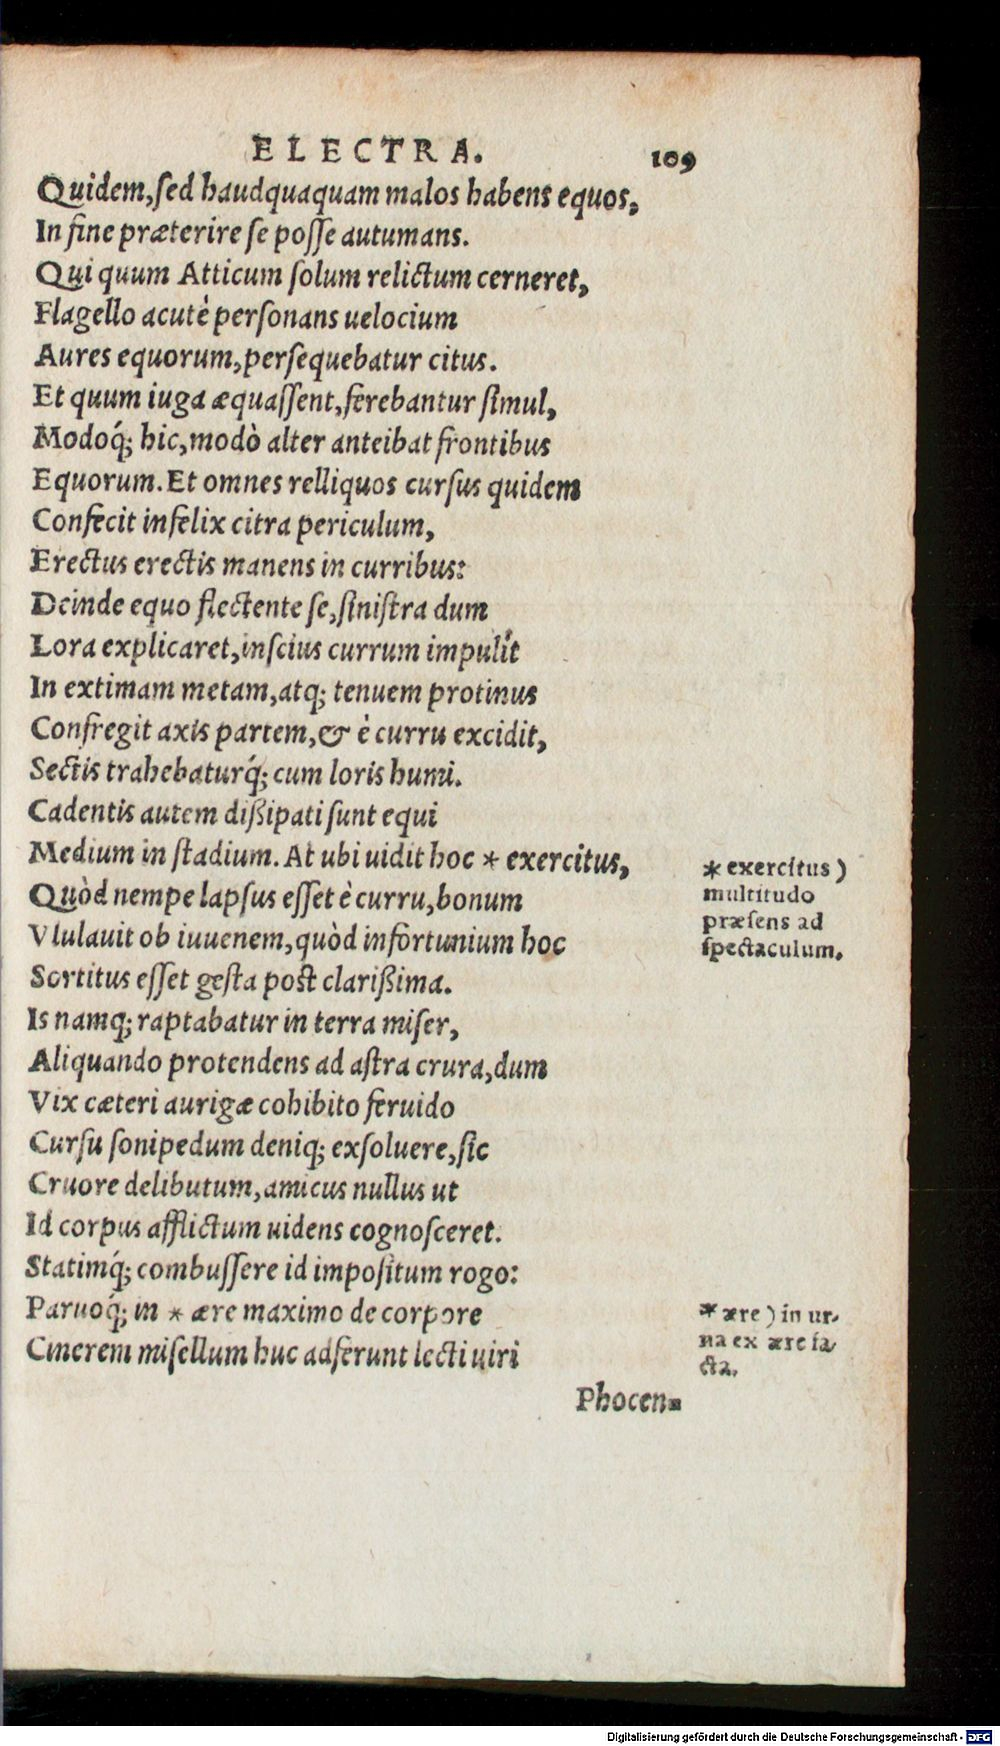 ELECTRA. 109
Quidem, ſed haudquaquam malos habens equos,
In fine præterire ſe poſſe autumans.
Qui quum Atticum ſolum relictum cerneret,
Flagello acutè perſonans uelocium
Aures equorum, perſequebatur citus.
Et quum iuga æquaſſent, ferebantur ſimul,
Modoq́; hic, modò alter anteibat frontibus
Equorum. Et omnes relliquos curſus quidem
Confecit infelix citra periculum,
Erectus erectis manens in curribus:
Deinde equo flectente ſe, ſiniſtra dum
Lora explicaret, inſcius currum impulít
In extimam metam, atq; tenuem protinus
Confregit axis partem, & è curru excidit,
Sectis trahebaturq́; cum loris humi.
Cadentis autem dißipati ſunt equi
Medium in ſtadium. At ubi uidit hoc * exercitus,
Quòd nempe lapſus eſſet è curru, bonum
Vlulauit ob iuuenem, quòd infortunium hoc
Sortitus eſſet geſta poſt clarißima.
Is namq; raptabatur in terra miſer,
Aliquando protendens ad aſtra crura, dum
Vix cæteri aurigæ cohibito feruido
Curſu ſonipedum deniq; exſoluere, ſic
Cruore delibutum, amicus nullus ut
Id corpus afflictum uidens cognoſceret.
Statimq́; combuſſere id impoſitum rogo:
Paruoq́; in * ære maximo de corpore
Cinerem miſellum huc adferunt lecti uiri
Phocen-
* exercitus)
multitudo
præſens ad
ſpectaculum.
* ære) in ur-
na ex ære fa-
cta.
Digitalisierung gefördert durch die Deutsche Forschungsgemeinschaft - DFG